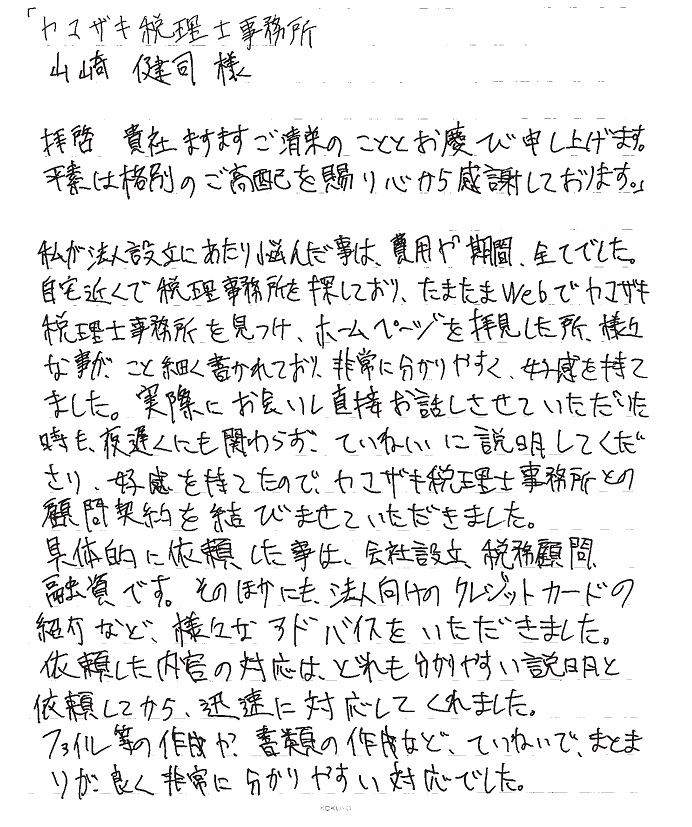 「ヤマザキ税理士事務所
山崎 健司 様
拝啓 貴社ますますご清栄のこととお慶び申し上げます。
平素は格別のご高配を賜り心から感謝しております。」
私が法人設立にあたり悩んだ事は、費用や期間、全てでした。
自宅近くで税理事務所を探しており、たまたまWebでヤマザキ
税理士事務所を見つけ、ホームページを拝見した所、様々
な事が、こと細く書かれており、非常に分かりやすく、好感を持て
ました。実際にお会いし直接お話しさせていただいた
時も、夜遅くにも関わらず、ていねいに説明してくだ
さり、好感を持てたので、ヤマザキ税理士事務所との
顧問契約を結びませていただきました。
具体的に依頼した事は、会社設立、税務顧問、
融資です。そのほかにも、法人向けのクレジットカードの
紹介など、様々なアドバイスをいただきました。
依頼した内容の対応は、どれも分かりやすい説明と
依頼してから、迅速に対応してくれました。
ファイル等の作成や、書類の作成など、ていねいで、まとま
りが良く非常に分かりやすい対応でした。
KOKUYO